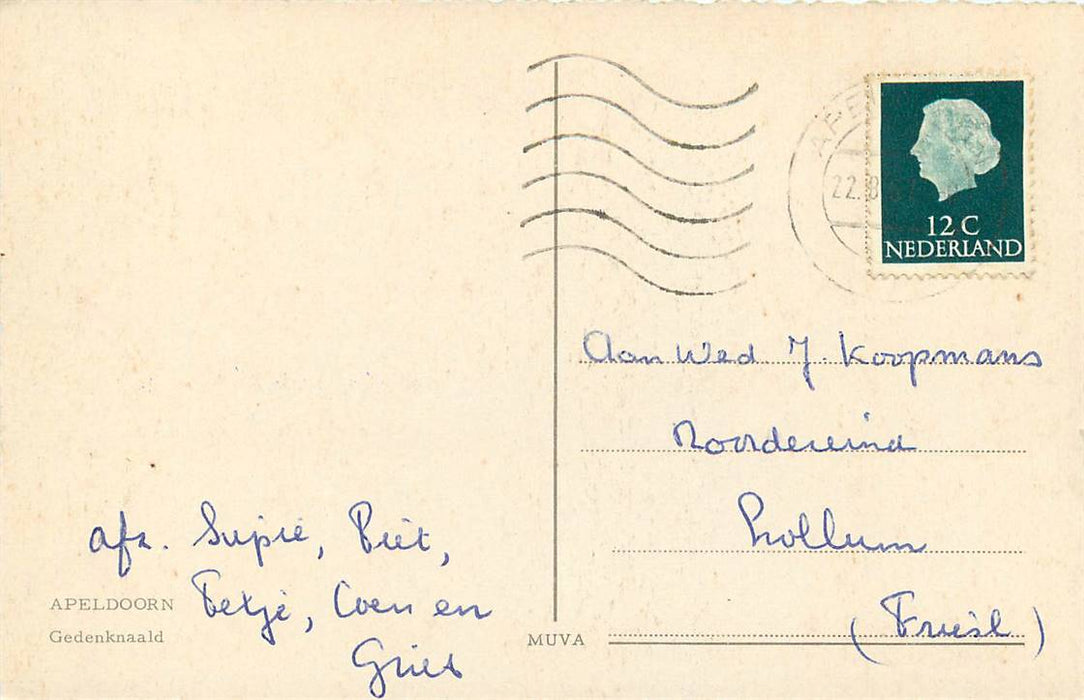 APE
22. 8
12 C
NEDERLAND
Aan Wed J. Koopmans
Noordereind
Hollum
(Friesl)
afz. Supie, Piet,
Fetje, Coen en
Griet
APELDOORN
Gedenknaald
MUVA